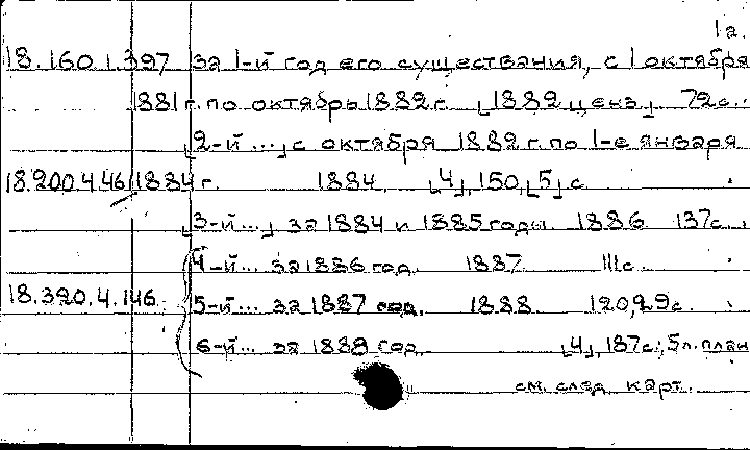 1а.
18.160.1.397 за 1-й год его существания, с 1 октября
1881 г. по октябрь 1882 г. [1882 ценз]. 72 с.
[2-й ...] с октября 1882 г. по 1-е января
18.200.4.46 1884 г. 1884. [4], 150, [5] с.
[3-й ...] за 1884 и 1885 годы. 1886 137 с.
4-й ... за 1886 год. 1887 111 с.
18.320.4.146. 5-й ... за 1887 год. 1888. 120, 29 с.
6-й ... за 1888 год. [4], 187 с., 5 л. план
см. след карт.